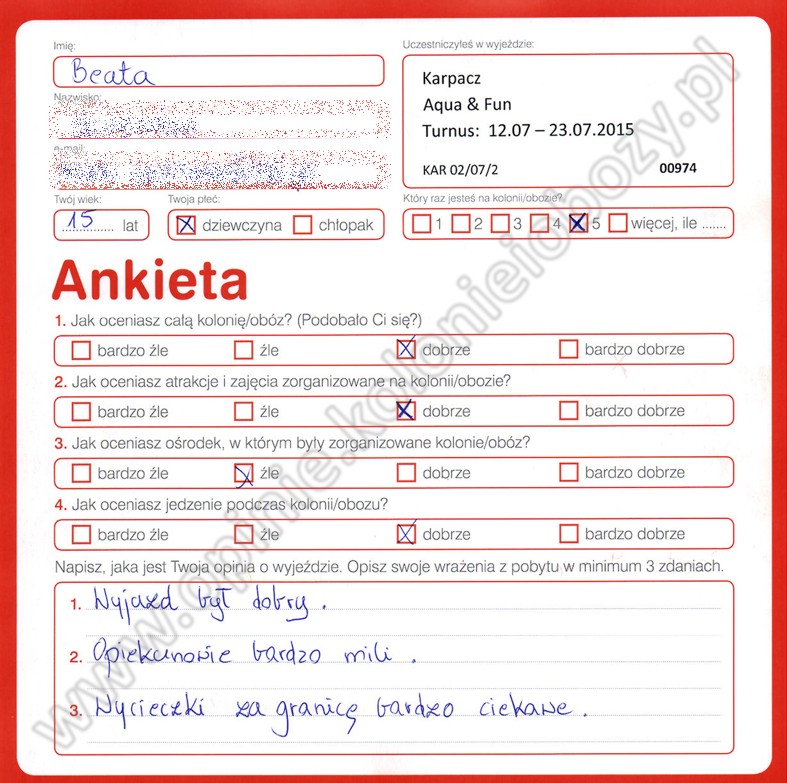 Imię:
Beata
Nazwisko:
e-mail:
Twój wiek:
15 lat
Twoja płeć:
dziewczyna chłopak
Uczestniczyłeś w wyjeździe:
Karpacz
Aqua & Fun
Turnus: 12.07 – 23.07.2015
KAR 02/07/2 00974
Który raz jesteś na kolonii/obozie?
1 2 3 4 5 więcej, ile .......
Ankieta
1. Jak oceniasz całą kolonię/obóz? (Podobało Ci się?)
bardzo źle źle dobrze bardzo dobrze
2. Jak oceniasz atrakcje i zajęcia zorganizowane na kolonii/obozie?
bardzo źle źle dobrze bardzo dobrze
3. Jak oceniasz ośrodek, w którym były zorganizowane kolonie/obóz?
bardzo źle źle dobrze bardzo dobrze
4. Jak oceniasz jedzenie podczas kolonii/obozu?
bardzo źle źle dobrze bardzo dobrze
Napisz, jaka jest Twoja opinia o wyjeździe. Opisz swoje wrażenia z pobytu w minimum 3 zdaniach.
1. Wyjazd był dobry.
2. Opiekunowie bardzo mili.
3. Wycieczki za granicę bardzo ciekawe.
www.opinie.kolonieiobozy.pl